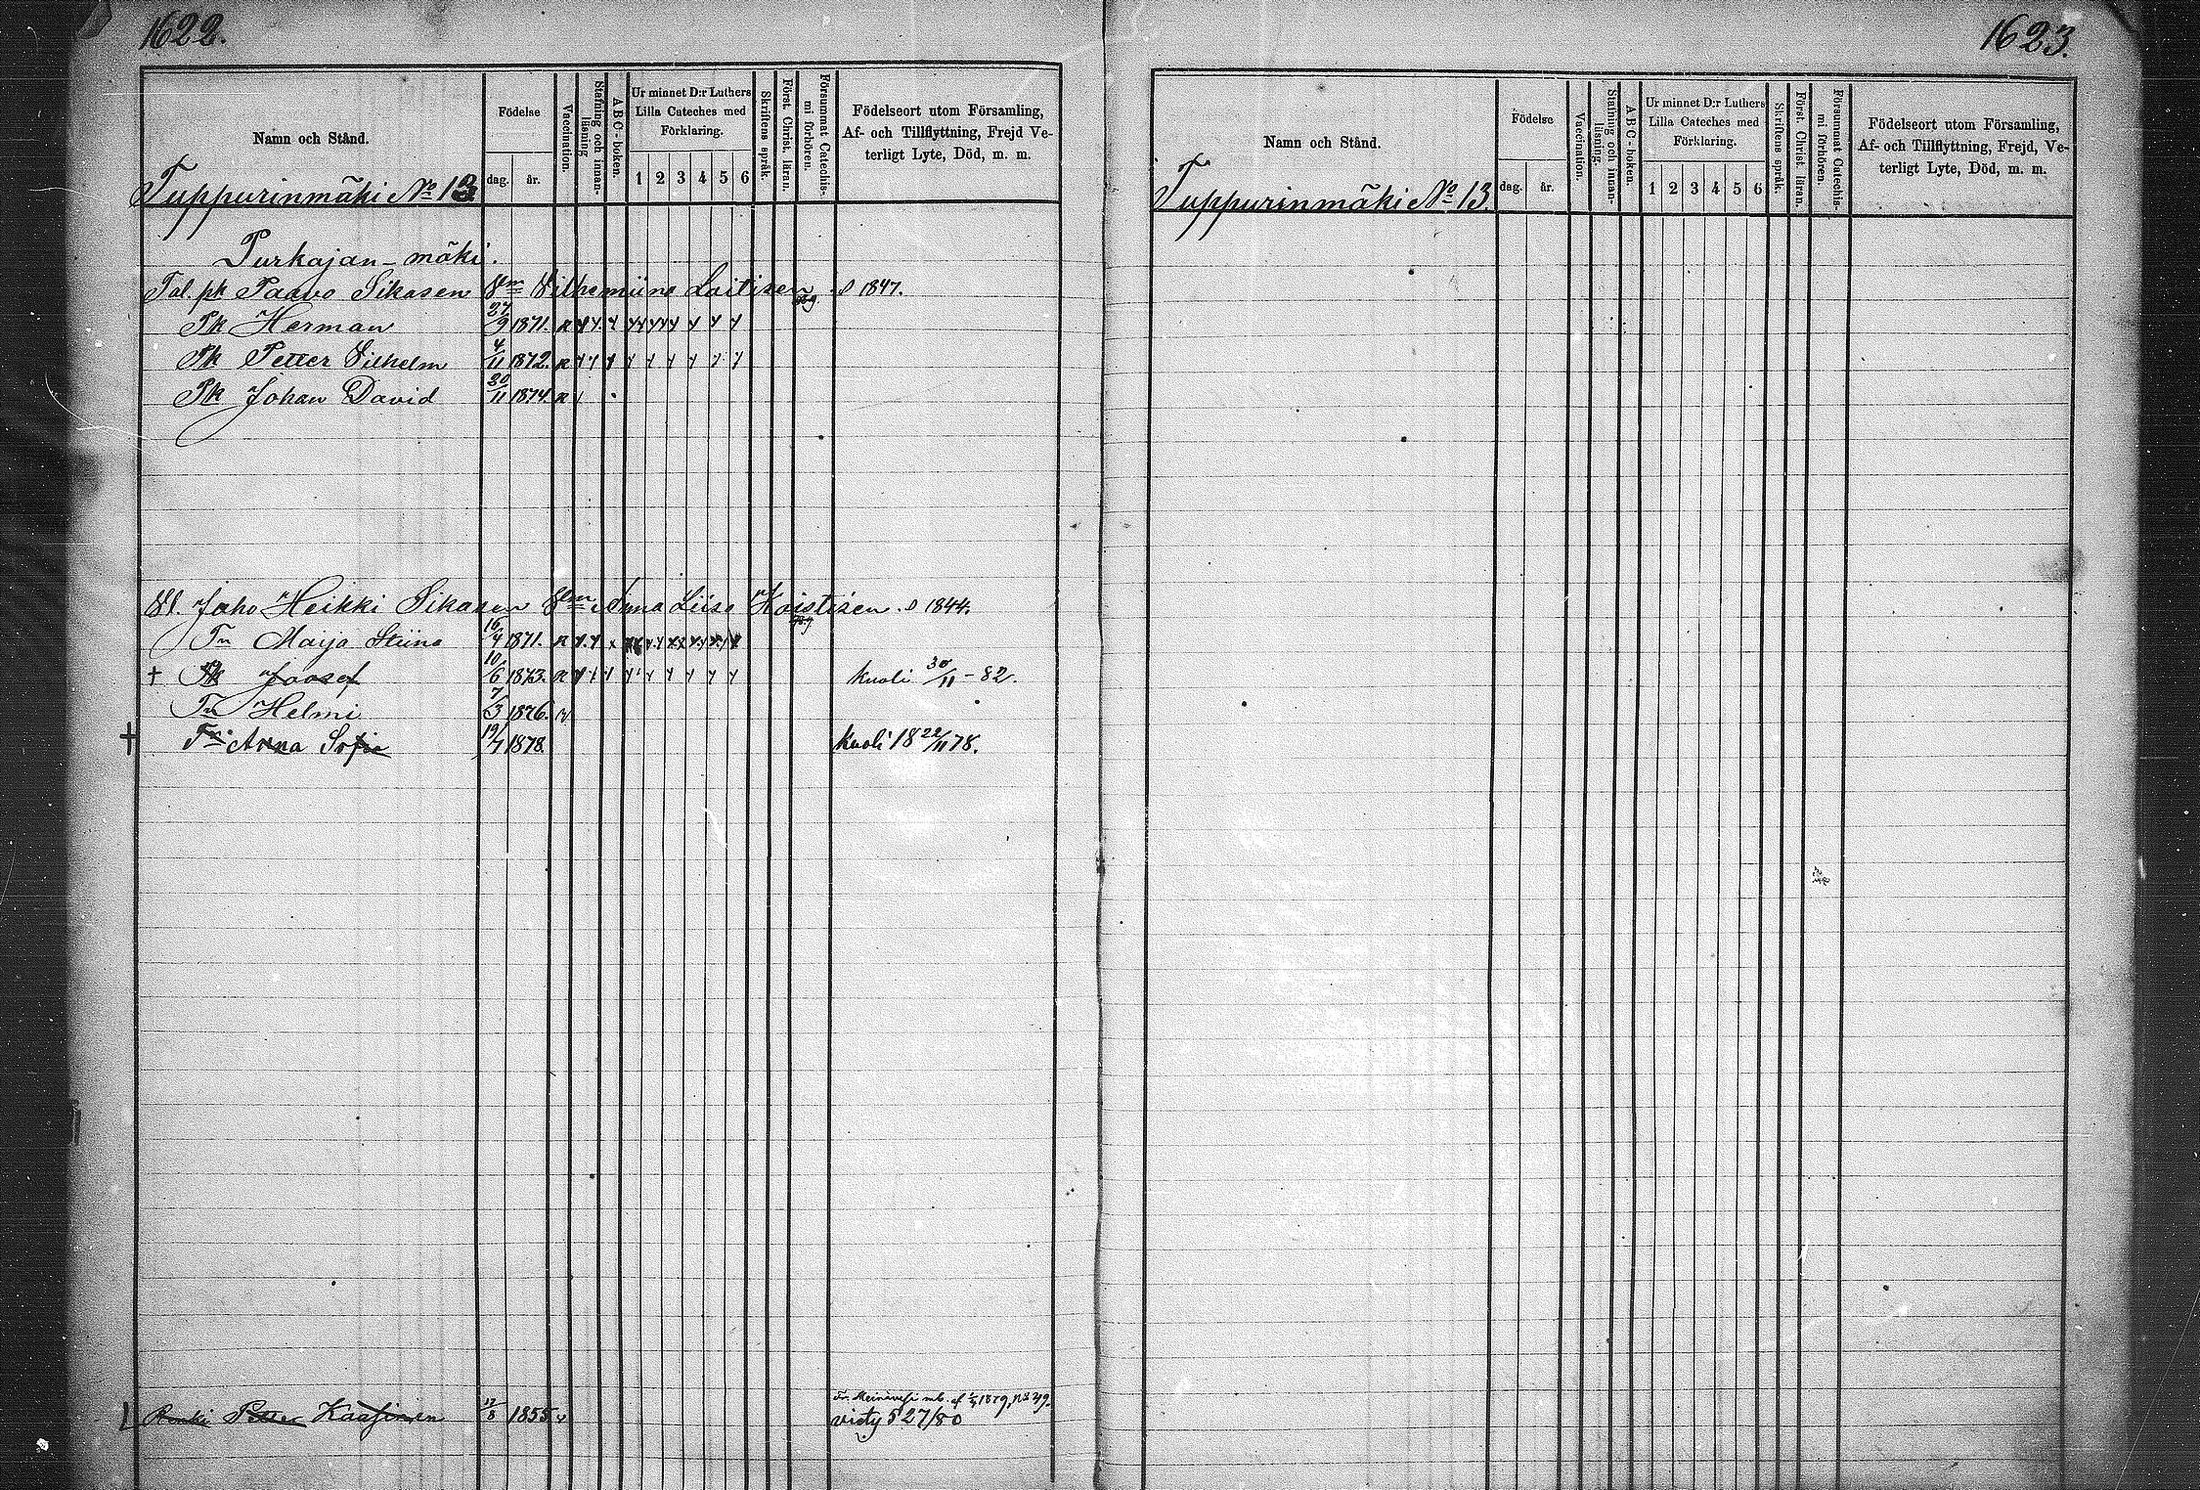 1622.
Namn och Stånd.
Födelse
dag.
år.
Vaccination.
Stafning och innan-
läsning
ABC-boken.
Ur minnet D:r Luthers
Lilla Cateches med
Förklaring.
1 2 3 4 5 6
Skriftens språk.
Först. Christ. läran.
Försummat Catechis-
mi förhören.
Födelseort utom Församling,
Af- och Tillflyttning, Frejd Ve-
terligt Lyte, Död, m. m.
Tuppurinmäki No 13
Purkajan-mäki.
Tal. pk Paavo Sikasen Vmo Vilhemiina Loitisen s 1847.
Pk Herman 27/9 1871.
Pk Petter Vilhelm 4/11 1872.
Pk Johan David 30/11 1874.
Juho Heikki Sikasen Vmo Anna Liisa Hoistisen s 1844.
Tr Maija Stiina 16/4 1871.
+ Pk Joosef 10/6 1873. kuoli 30/11 - 82.
Tr Helmi 7/3 1876.
+ Tr Anna Sofia 19/7 1878. kuoli 18 22/11 78.
Renki Petter Kaasinen 17/8 1855 Fr. Heinävesi mb. af 1879, No 49.
527/80
1623.
Namn och Stånd.
Födelse
dag.
år.
Vaccination.
Stafning och innan-
läsning.
ABC-boken.
Ur minnet D:r Luthers
Lilla Cateches med
Förklaring.
1 2 3 4 5 6
Skriftens språk.
Först. Christ. läran.
Försummat Catechis-
mi förhören.
Födelseort utom Församling,
Af- och Tillflyttning, Frejd, Ve-
terligt Lyte, Död, m. m.
Tuppurinmäki No 13.